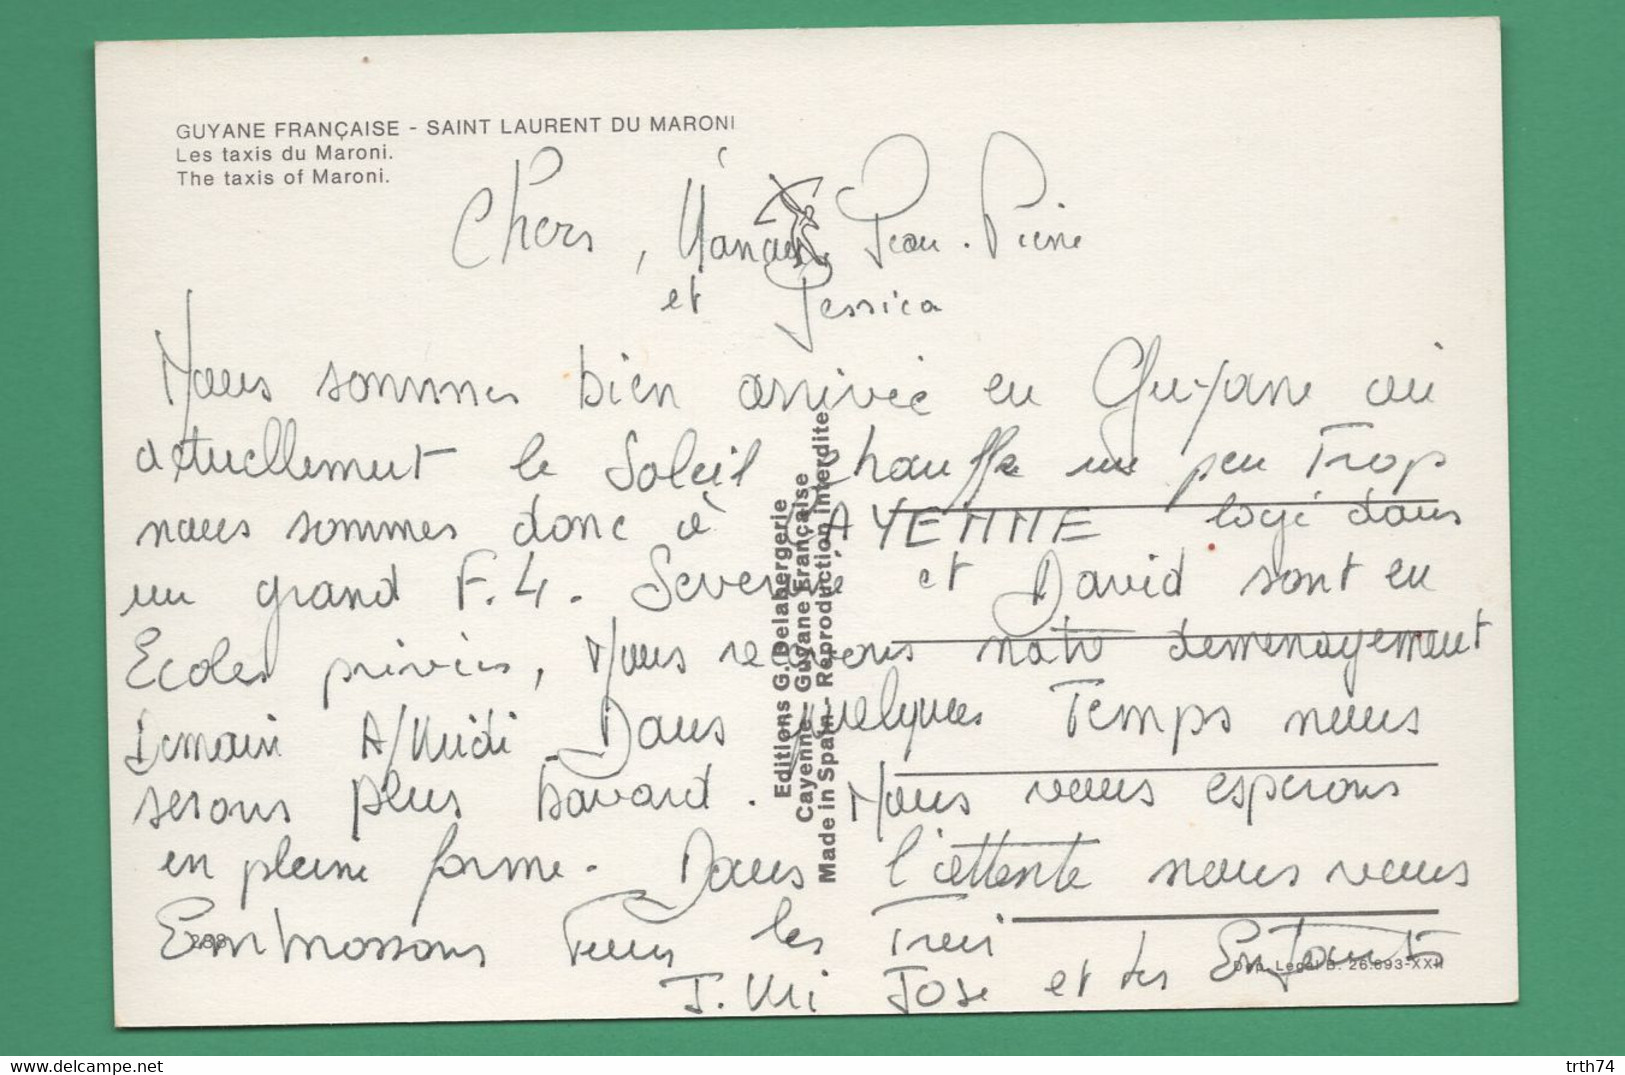 GUYANE FRANÇAISE - SAINT LAURENT DU MARONI
Les taxis du Maroni.
The taxis of Maroni.
Chers, Jean-Pierre
et Jessica
Nous sommes bien arrivée en Guyane où
actuellement le Soleil chauffe un peu Trop
nous sommes donc à CAYENNE logé dans
un grand F.4. Severine et David sont en
Ecoles privées, Nous recevons notre demenagement
Demain A/Midi. Dans quelques Temps nous
serons plus bavard. Nous vous esperons
en pleine forme. Dans l'attente nous vous
Embrassons Tous les Trois
J. Mi José et les Enfants
Editions G. Delabergerie
Cayenne - Guyane Française
Made in Spain - Reproduction interdite
288
Dep. Legal B. 26.693-XXII
trth74